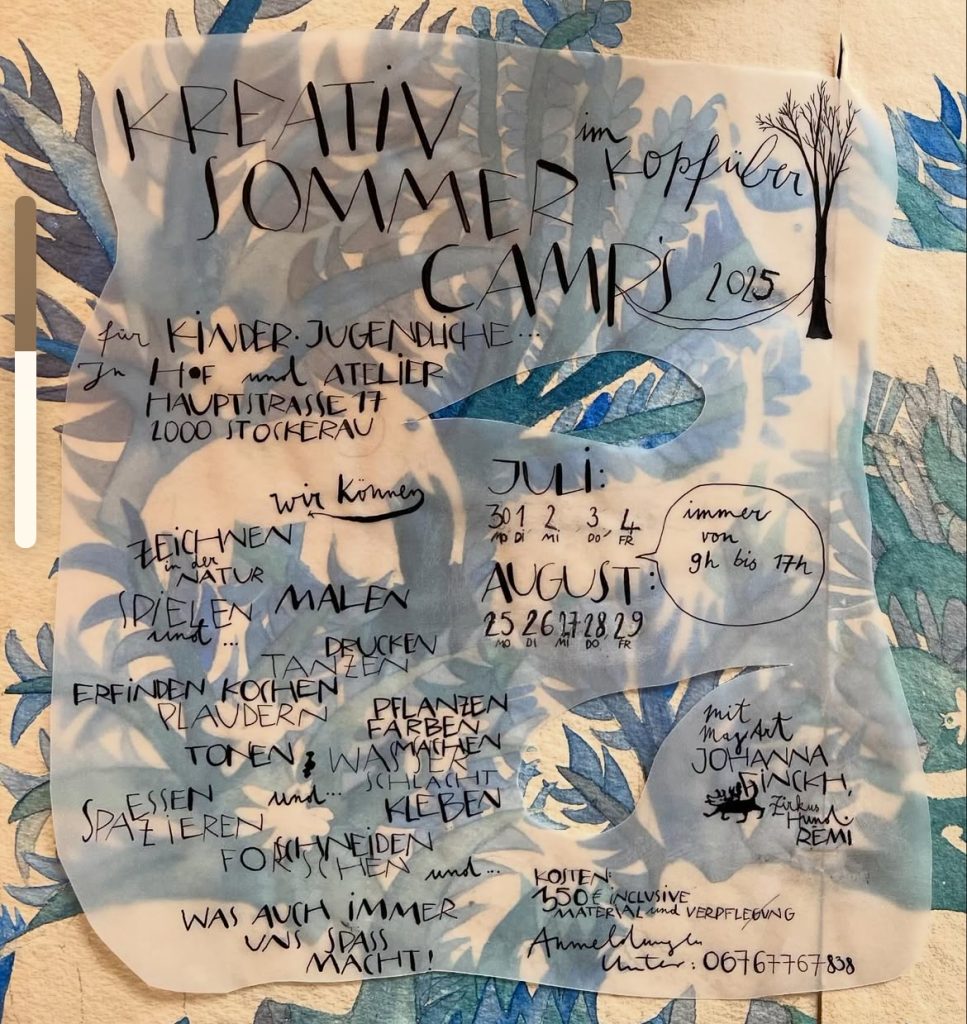 KREATIV
SOMMER
CAMPS 2025
im
Kopfüber
für KINDER · JUGENDLICHE ...
In HOF und ATELIER
HAUPTSTRASSE 17
2000 STOCKERAU
wir können
ZEICHNEN
in der
NATUR
SPIELEN
und ...
MALEN
DRUCKEN
TANZEN
ERFINDEN KOCHEN
PLAUDERN
PFLANZEN
FARBEN
MACHEN
TONEN & WASSER
SCHLACHT
ESSEN und...
KLEBEN
SPAZIEREN
SCHNEIDEN
FORSCHEN und ...
WAS AUCH IMMER
UNS SPASS
MACHT!
JULI:
30 1 2 3, 4
MO DI MI DO FR
AUGUST:
25 26 27 28 29
MO DI MI DO FR
immer
von
9h bis 17h
mit
Mag Art
JOHANNA
HINCKH,
Zirkus
Hund
REMI
KOSTEN:
350 € INCLUSIVE
MATERIAL und VERPFLEGUNG
Anmeldungen
Unter: 06767767838